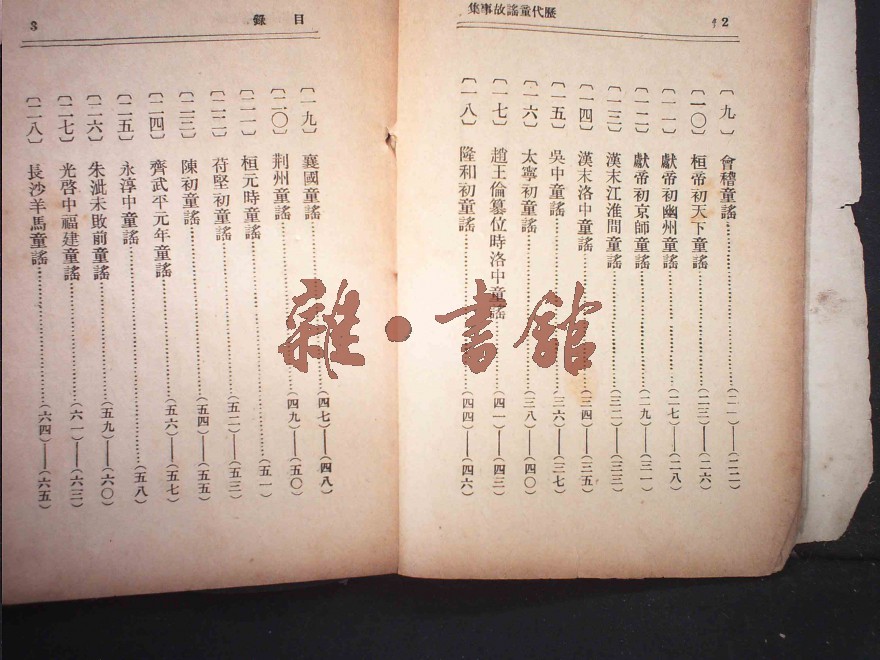 歷代童謠故事集
2
〔九〕 會稽童謠………(二一)——(二二)
〔一〇〕 桓帝初天下童謠………(二三)——(二六)
〔一一〕 獻帝初幽州童謠………(二七)——(二八)
〔一二〕 獻帝初京師童謠………(二九)——(三一)
〔一三〕 漢末江淮間童謠………(三二)——(三三)
〔一四〕 漢末洛中童謠………(三四)——(三五)
〔一五〕 吳中童謠………(三六)——(三七)
〔一六〕 太寧初童謠………(三八)——(四〇)
〔一七〕 趙王倫篡位時洛中童謠………(四一)——(四三)
〔一八〕 隆和初童謠………(四四)——(四六)
目錄
3
〔一九〕 襄國童謠………(四七)——(四八)
〔二〇〕 荆州童謠………(四九)——(五〇)
〔二一〕 桓元時童謠………(五一)
〔二二〕 苻堅初童謠………(五二)——(五三)
〔二三〕 陳初童謠………(五四)——(五五)
〔二四〕 齊武平元年童謠………(五六)——(五七)
〔二五〕 永淳中童謠………(五八)
〔二六〕 朱泚未敗前童謠………(五九)——(六〇)
〔二七〕 光啓中福建童謠………(六一)——(六三)
〔二八〕 長沙羊馬童謠………(六四)——(六五)
雜·書館